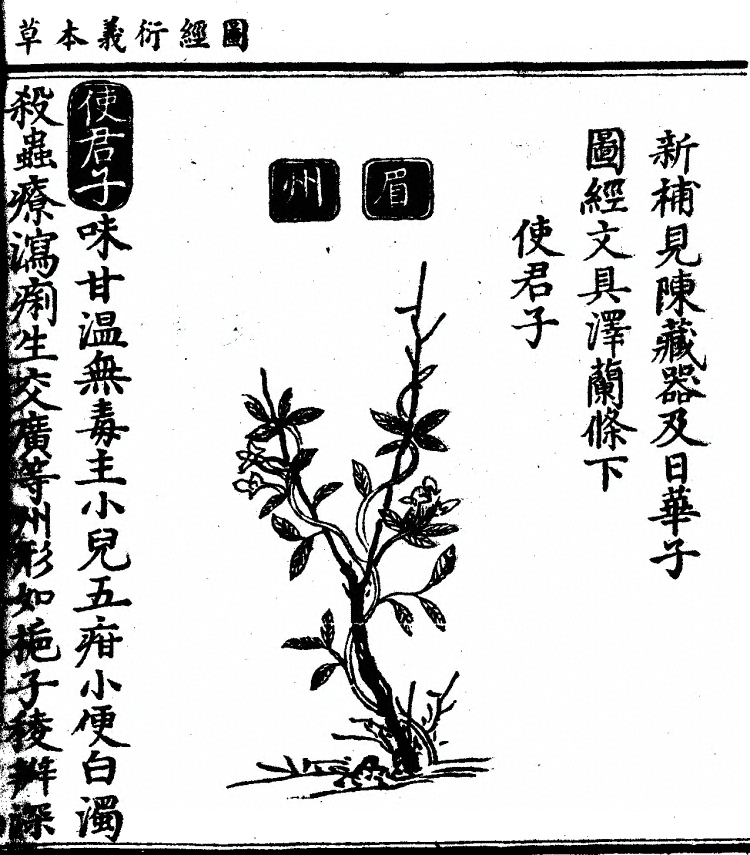 圖經衍義本草
新補見陳藏器及日華子
圖經文具澤蘭條下
使君子
眉
州
使君子味甘温無毒主小兒五疳小便白濁
殺蟲療瀉痢生交廣等州形如梔子稜瓣深